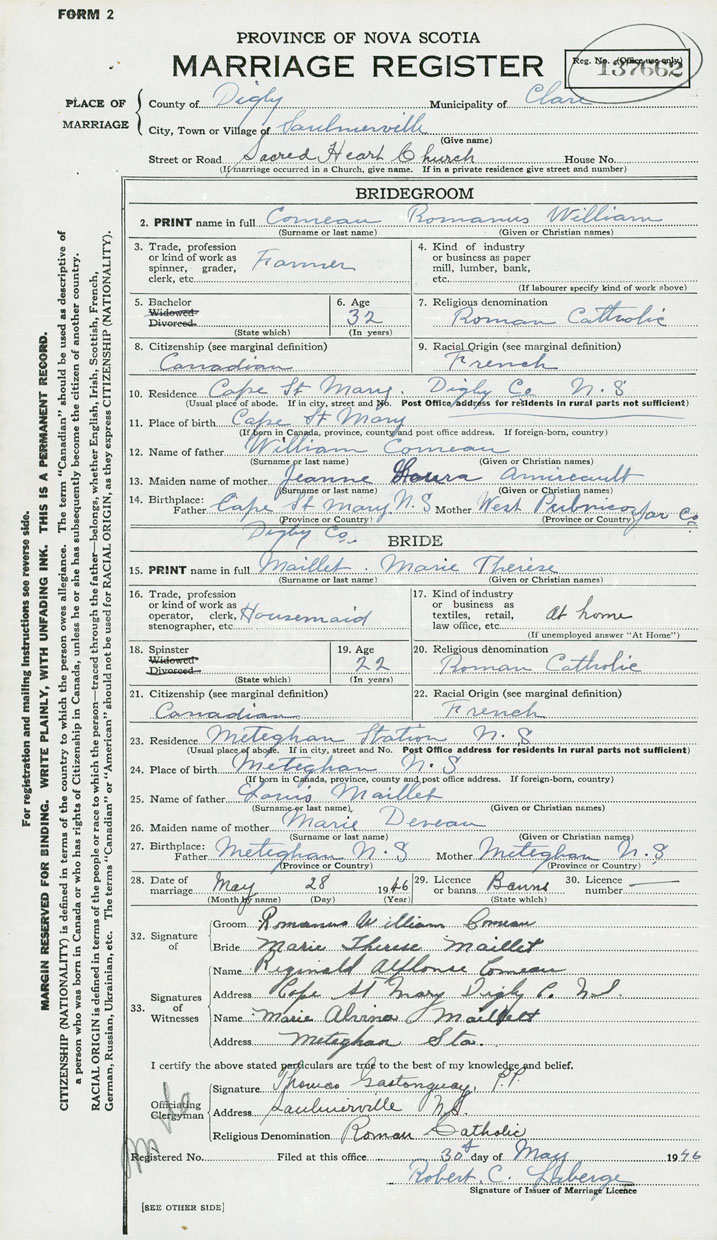 FORM 2
PROVINCE OF NOVA SCOTIA
MARRIAGE REGISTER
Reg. No. (Office use only)
137662
PLACE OF MARRIAGE
County of Digby Municipality of Clare
City, Town or Village of Saulnierville
(Give name)
Street or Road Sacred Heart Church House No.
(If marriage occurred in a Church, give name. If in a private residence give street and number)
BRIDEGROOM
2. PRINT name in full Comeau Romanus William
(Surname or last name) (Given or Christian names)
3. Trade, profession or kind of work as spinner, grader, clerk, etc. Farmer
4. Kind of industry or business as paper mill, lumber, bank, etc.
(If labourer specify kind of work above)
5. Bachelor Widowed Divorced
(State which)
6. Age 32
(In years)
7. Religious denomination
Roman Catholic
8. Citizenship (see marginal definition)
Canadian
9. Racial Origin (see marginal definition)
French
10. Residence Cape St Mary. Digby Co N.S
(Usual place of abode. If in city, street and No. Post Office address for residents in rural parts not sufficient)
11. Place of birth Cape St Mary
(If born in Canada, province, county and post office address. If foreign-born, country)
12. Name of father William Comeau
(Surname or last name) (Given or Christian names)
13. Maiden name of mother Jeanne Laura Amireault
(Surname or last name) (Given or Christian names)
14. Birthplace: Father Cape St Mary N.S Mother West Pubnico Yar Co
(Province or Country) (Province or Country)
Digby Co.
BRIDE
15. PRINT name in full Maillet. Marie Therese
(Surname or last name) (Given or Christian names)
16. Trade, profession or kind of work as operator, clerk, stenographer, etc. Housemaid
17. Kind of industry or business as textiles, retail, law office, etc. At home
(If unemployed answer "At Home")
18. Spinster Widowed Divorced
(State which)
19. Age 22
(In years)
20. Religious denomination
Roman Catholic
21. Citizenship (see marginal definition)
Canadian
22. Racial Origin (see marginal definition)
French
23. Residence Meteghan Station N.S
(Usual place of abode. If in city, street and No. Post Office address for residents in rural parts not sufficient)
24. Place of birth Meteghan N.S
(If born in Canada, province, county and post office address. If foreign-born, country)
25. Name of father Louis Maillet
(Surname or last name) (Given or Christian names)
26. Maiden name of mother Marie Deveau
(Surname or last name) (Given or Christian names)
27. Birthplace: Father Meteghan N.S Mother Meteghan N.S
(Province or Country) (Province or Country)
28. Date of marriage May 28 1946
(Month by name) (Day) (Year)
29. Licence or banns Banns
(State which)
30. Licence number —
32. Signature of
Groom Romanus William Comeau
Bride Marie Therese Maillet
33. Signatures of Witnesses
Name Reginald Alfonse Comeau
Address Cape St Mary Digby C. N.S.
Name Marie Alvina Maillett
Address Meteghan Sta.
I certify the above stated particulars are true to the best of my knowledge and belief.
Officiating Clergyman
Signature Thomas Gastonguay, P.P.
Address Saulnierville N.S.
Religious Denomination Roman Catholic
Registered No. Filed at this office 30th day of May 1946
Robert C.
Signature of Issuer of Marriage Licence
[SEE OTHER SIDE]
For registration and mailing instructions see reverse side.
MARGIN RESERVED FOR BINDING. WRITE PLAINLY, WITH UNFADING INK. THIS IS A PERMANENT RECORD.
CITIZENSHIP (NATIONALITY) is defined in terms of the country to which the person owes allegiance. The term "Canadian" should be used as descriptive of
a person who was born in Canada or who has rights of Citizenship in Canada, unless he or she has subsequently become the citizen of another country.
RACIAL ORIGIN is defined in terms of the people or race to which the person—traced through the father—belongs, whether English, Irish, Scottish, French,
German, Russian, Ukrainian, etc. The terms "Canadian" or "American" should not be used for RACIAL ORIGIN, as they express CITIZENSHIP (NATIONALITY).